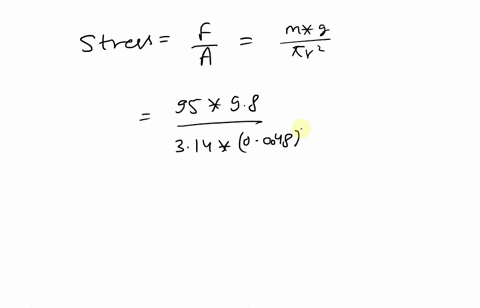 Stress = F/A = m*g/πr²
= 95*9.8/3.14*(0.0048)